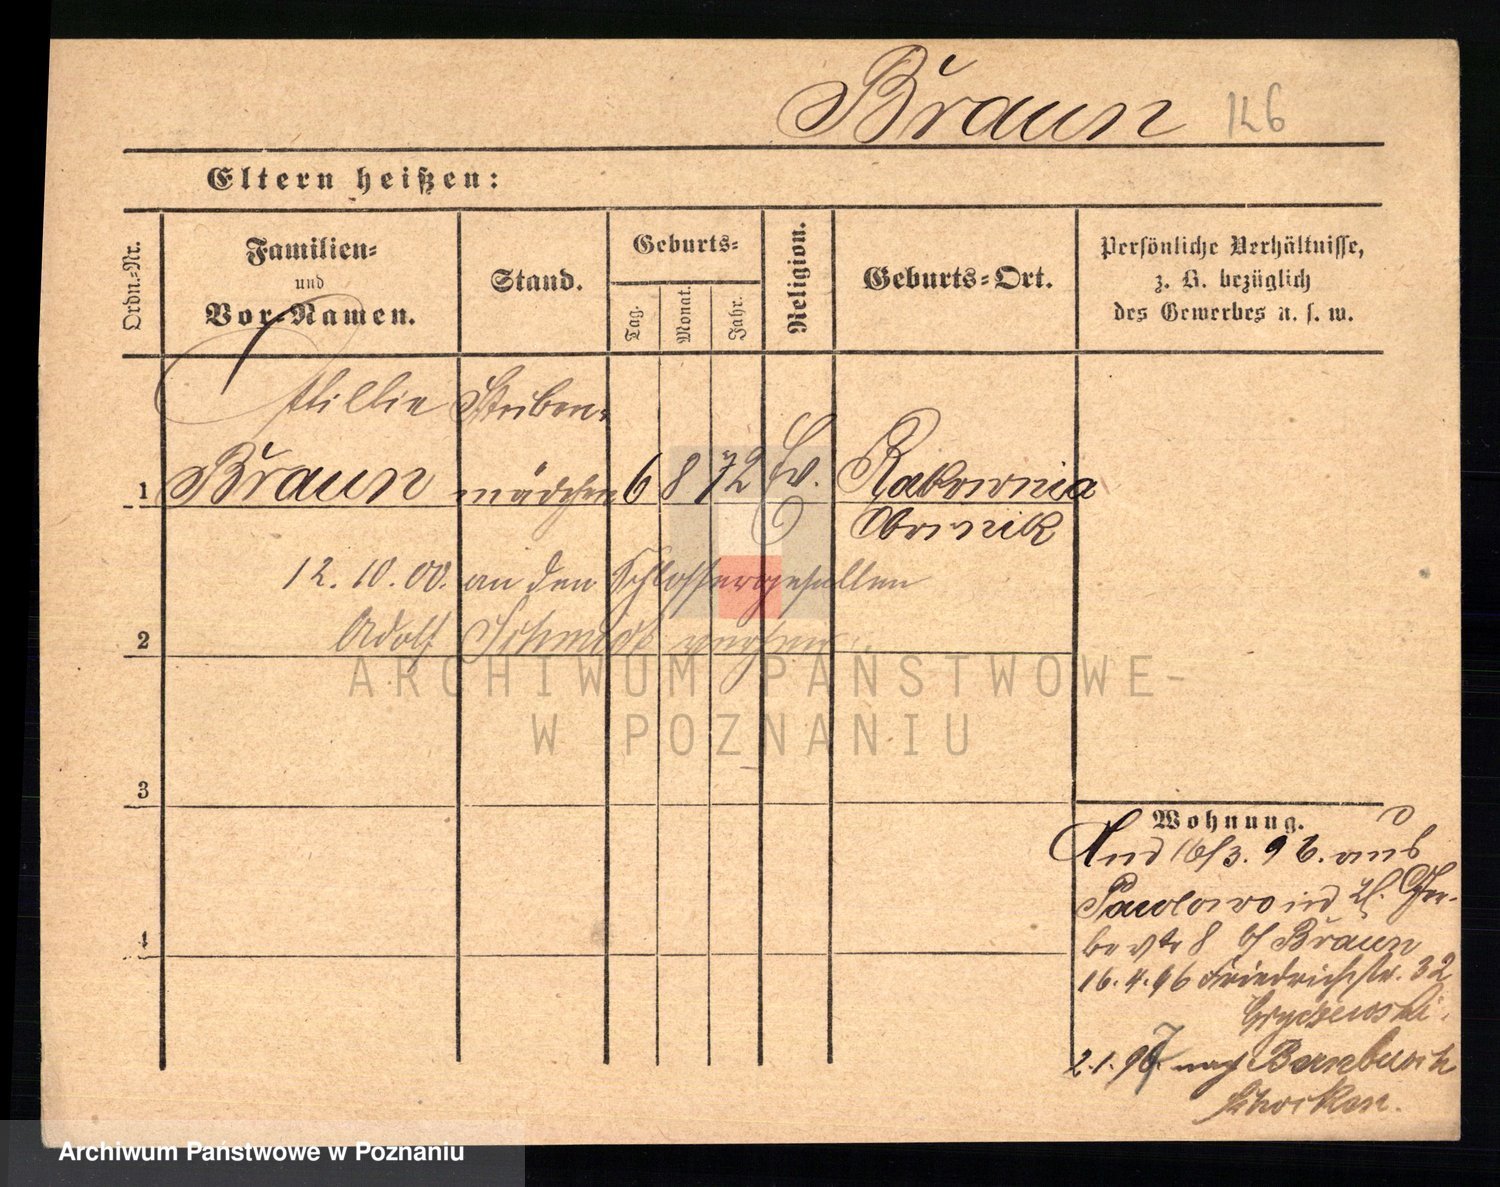 Braun 126
Eltern heißen:
Ordn.-Nr.
Familien-
und
Vor-Namen.
Stand.
Geburts-
Tag.
Monat.
Jahr.
Religion.
Geburts-Ort.
Persönliche Verhältnisse,
z. B. bezüglich
des Gewerbes u. s. w.
Stuben-
1 Braun mädchen 6 8 72 Ev. Rakownia
Obornik
12. 10. 00. an den Schlossergesellen
2 Adolf Schmidt verh.
ARCHIWUM PAŃSTWOWE
W POZNANIU
3
4
Wohnung.
16/3. 96. aus
Pawlowo ind
8 b/ Braun
16. 4. 96 Friedrichstr. 32
2. 1. 97 nach
Schocken.
Archiwum Państwowe w Poznaniu